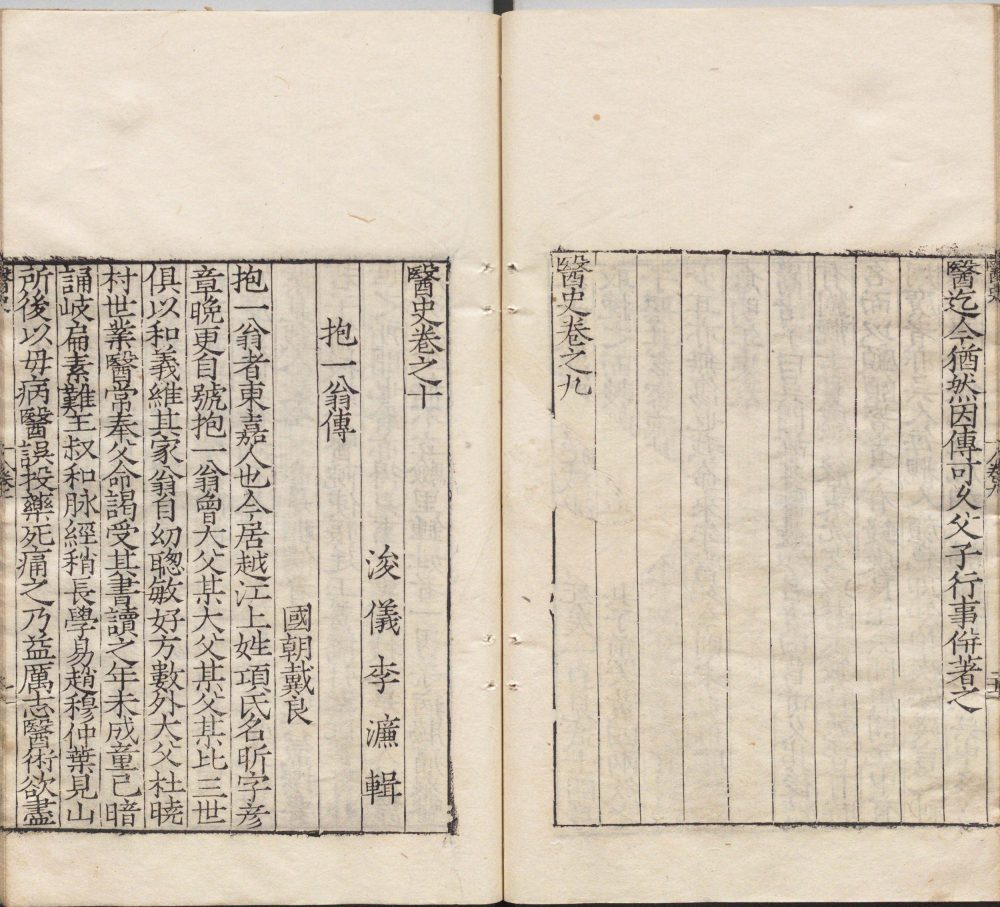 醫迄今猶然因傳可久父子行事倂著之
醫史卷之九
醫史卷之十
浚儀李濂輯
抱一翁傳
國朝戴良
抱一翁者東嘉人也今居越江上姓項氏名昕字彥
章晚更自號抱一翁曾大父某大父某父某比三世
俱以和義維其家翁自幼聰敏好方數外大父杜曉
村世業醫常奉父命謁受其書讀之年未成童已暗
誦岐扁素難王叔和脉經稍長學易趙穆仲葉見山
所後以母病醫誤投藥死痛之乃益厲志醫術欲盡